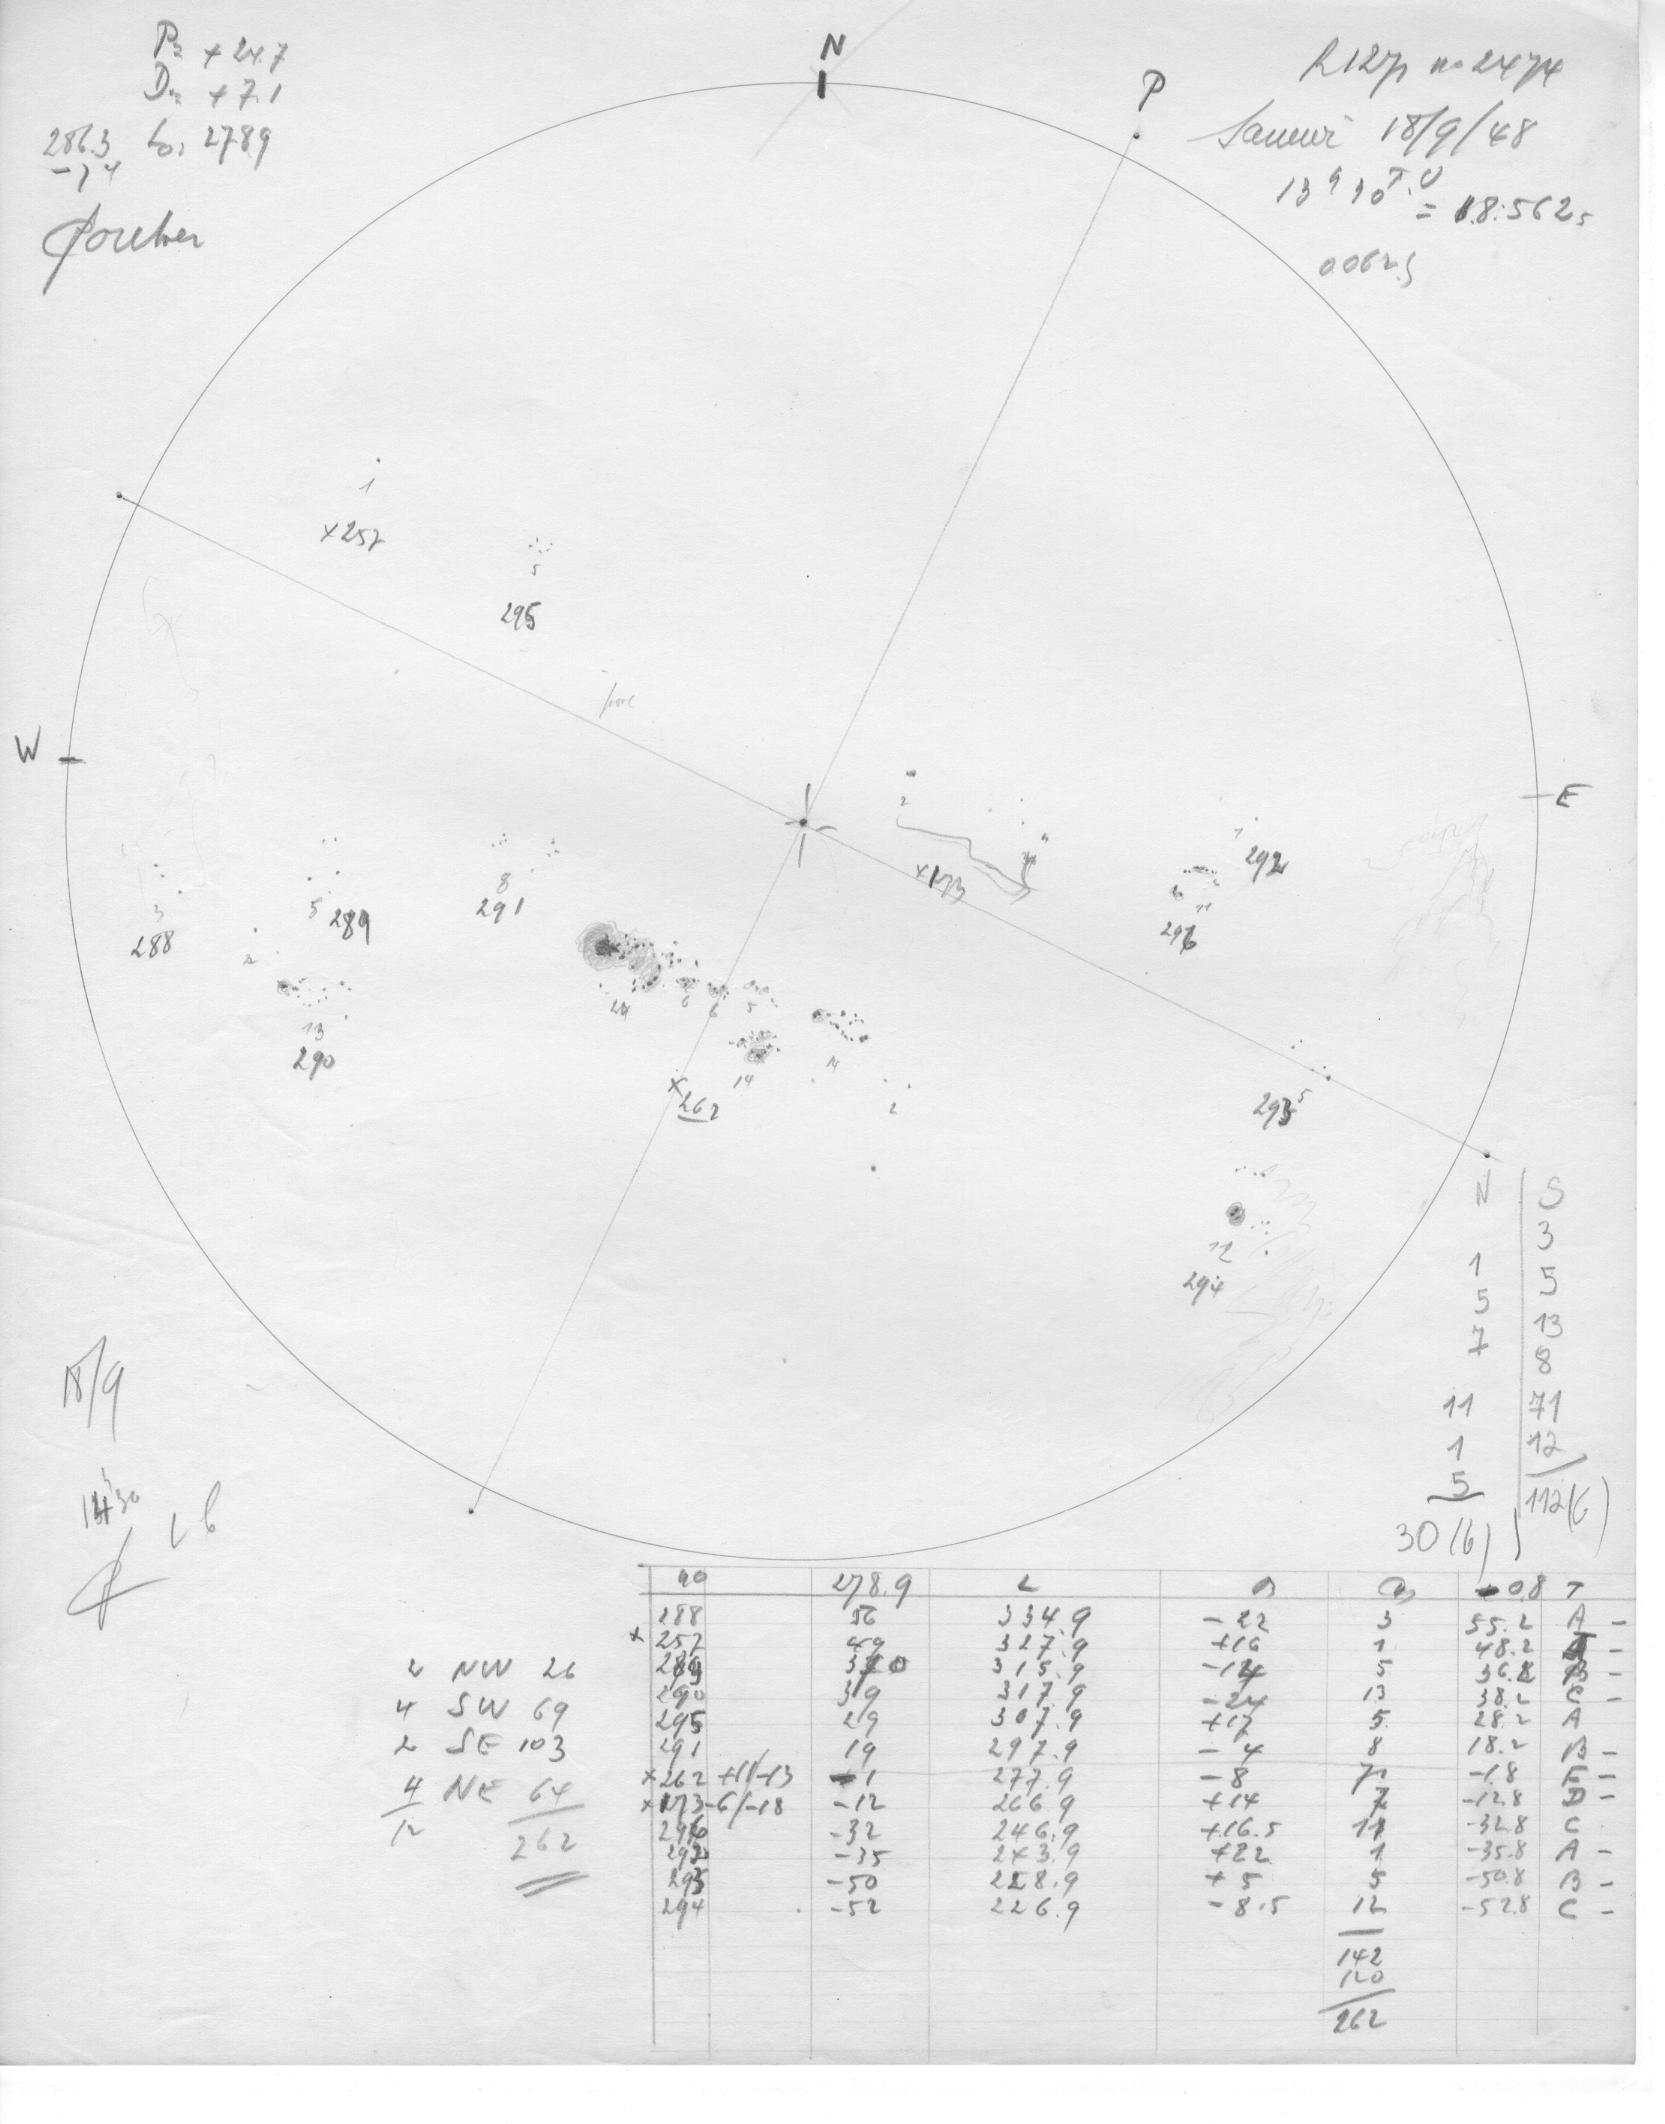 P= +24.7
D= +7.1
286.3 L0= 278.9
-7.4
N
P
no 2474
18/9/48
13h30 T.U
= 18.5625
00625
1
x257
5
295
pore
W
E
2
x173
1
292
6
11
296
3
288
5 289
8
291
2
13
290
24
6
6
5
14
14
x262
2
293 5
12
294
N | S
3
1 5
5 13
7 8
11 71
1 12
5 112(6)
30(6)
18/9
14h30
no 278.9 L B -0.8 T
288 56 334.9 -22 3 55.2 A -
x 257 49 327.9 +16 1 48.2 -
289 315.9 -14 5 36.2 B -
290 39 317.9 -24 13 38.2 C -
295 29 307.9 +17 5 28.2 A
291 19 297.9 -4 8 18.2 B -
x262 +11/-13 -1 277.9 -8 71 -1.8 E -
x173 -6/-18 -12 266.9 +14 7 -12.8 D -
296 -32 246.9 +16.5 11 -32.8 C
292 -35 243.9 +22 1 -35.8 A -
293 -50 228.9 +5 5 -50.8 B -
294 -52 226.9 -8.5 12 -52.8 C -
142
120
262
2 NW 26
4 SW 69
2 SE 103
4 NE 64
12 262